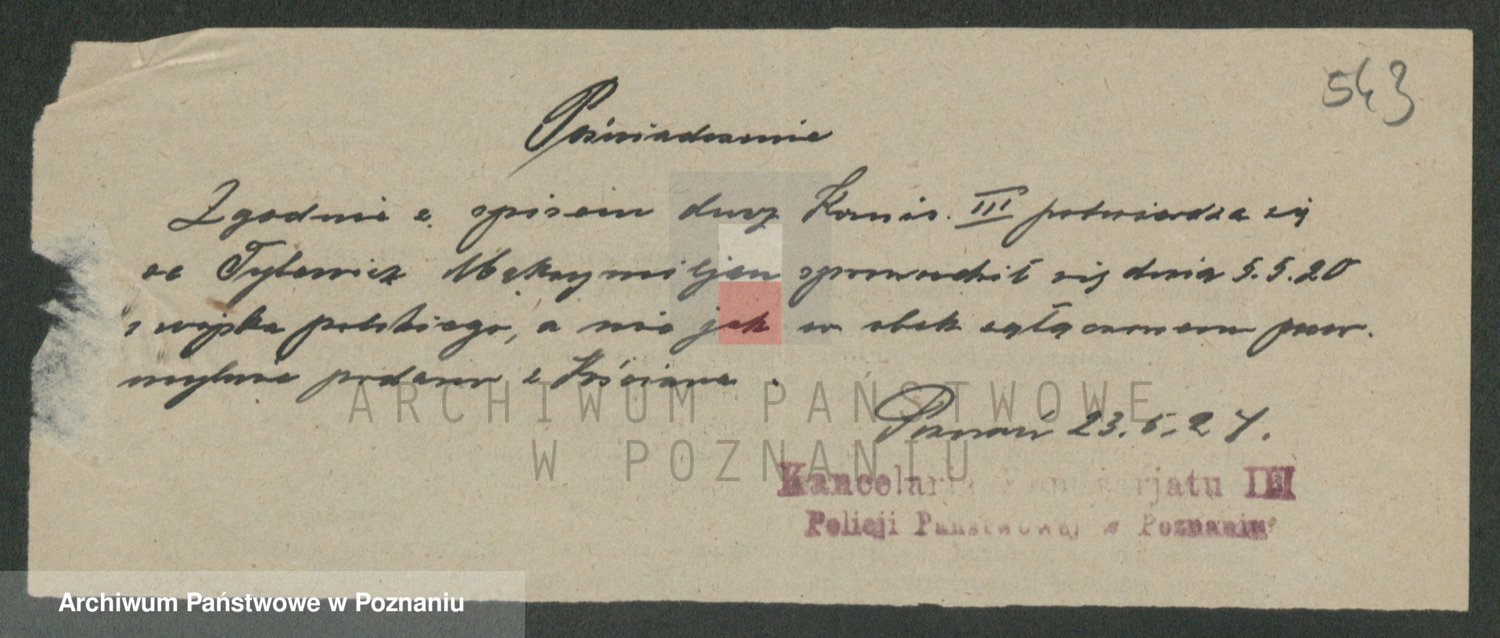 543
Poświadczenie
Zgodnie z spisem dusz Komis. III potwierdza się
że Tylewicz Maksymiljan sprowadził się dnia 5.5.20
z wojska polskiego, a nie jak w obok załączonem pośw.
mylnie podano z Kościana.
Poznań 23.5.27.
Kancelaria Komisarjatu III
Policji Państwowej w Poznaniu
ARCHIWUM PAŃSTWOWE
W POZNANIU
Archiwum Państwowe w Poznaniu